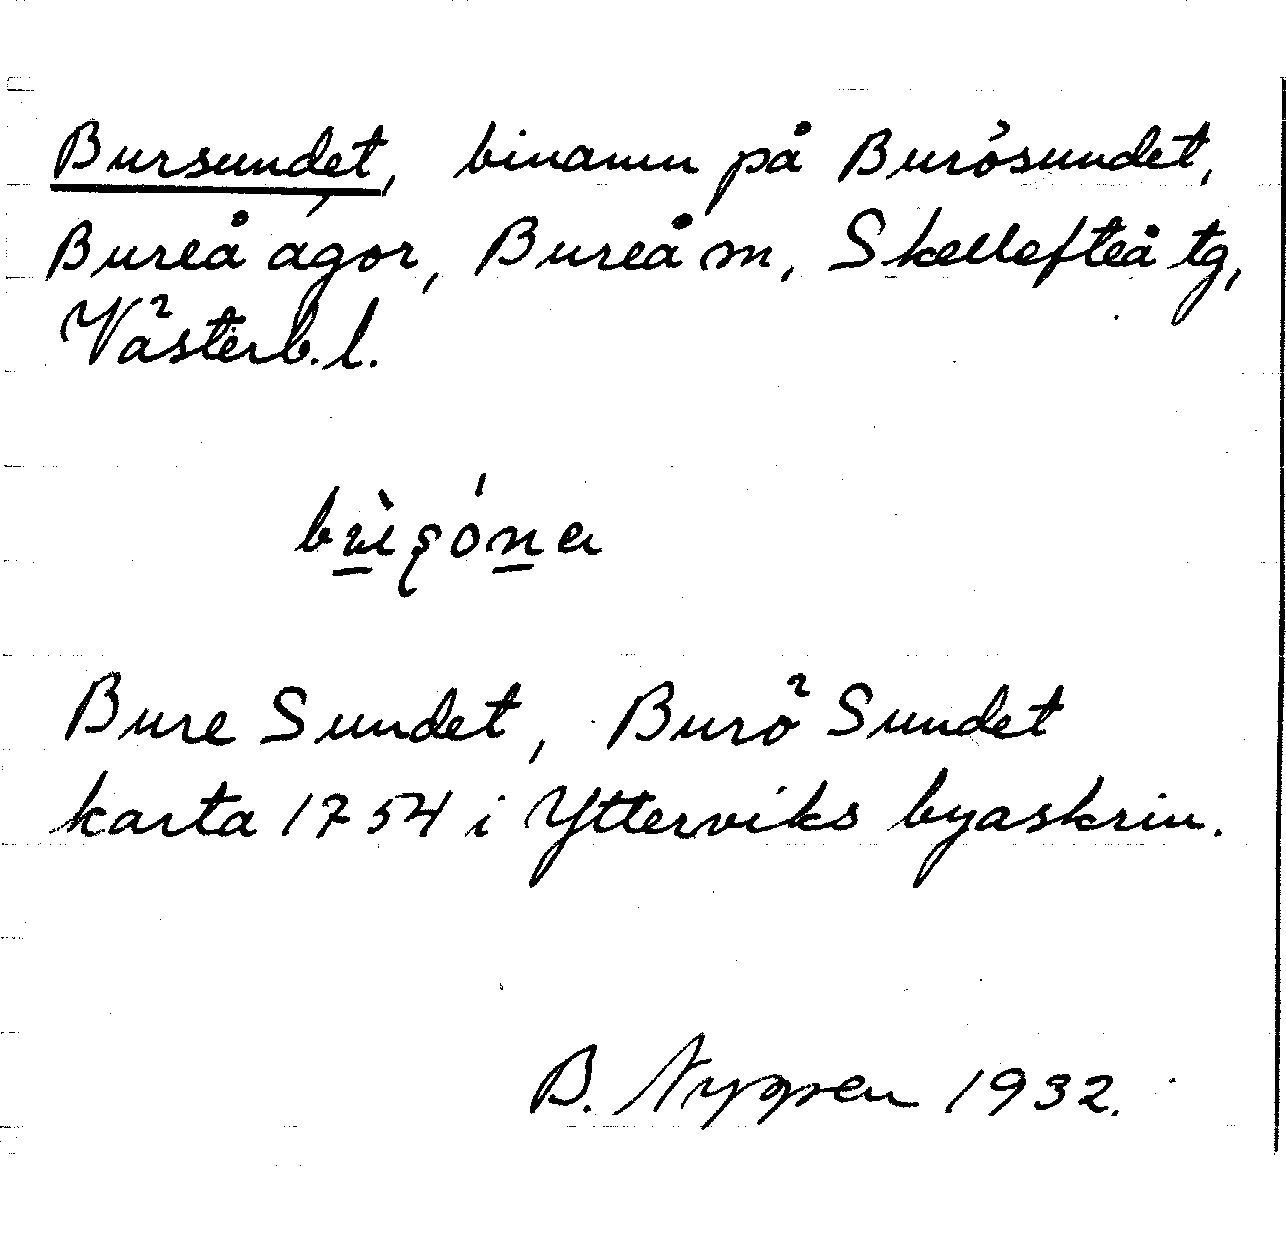 Bursundet, binamn på Burösundet,
Bureå ägor, Bureå m, Skellefteå tg,
Västerb.l.
Bure Sundet, Burö Sundet
karta 1754 i Ytterviks byaskrin.
B. Nyppen 1932.